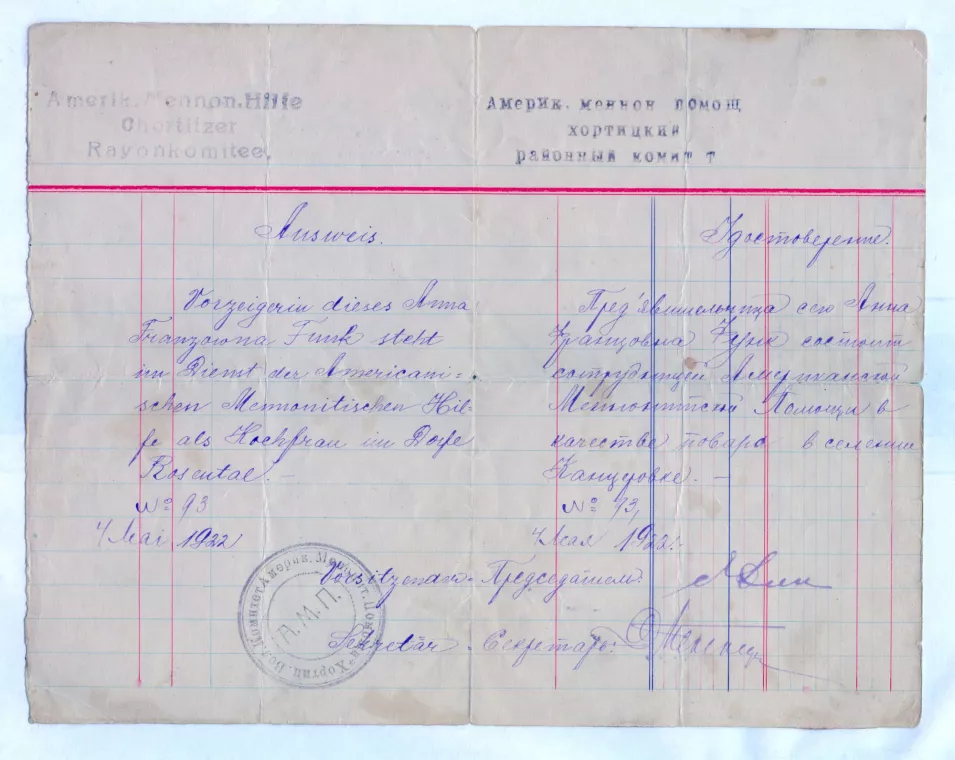 Amerik. Mennon. Hilfe
Chortitzer
Rayonkomitee.
Ausweis.
Vorzeigerin dieses Anna
Franzowna Funk steht
im Dienst der Americani-
schen Mennonitischen Hil-
fe als Kochfrau im Dorfe
Rosental. —
No 93
4 Mai 1922
Америк. меннон помощ
хортицкий
районный комит т
Удостоверение.
Пред'явительница сего Анна
Францовна Функ состоит
сотрудницей Американской
Меннонитской Помощи в
качестве повара в селении
Канцеровке. —
No 93,
4 Мая 1922.
Vorsitzender - Председатель:
Sekretär - Секретарь:
А.М.П.